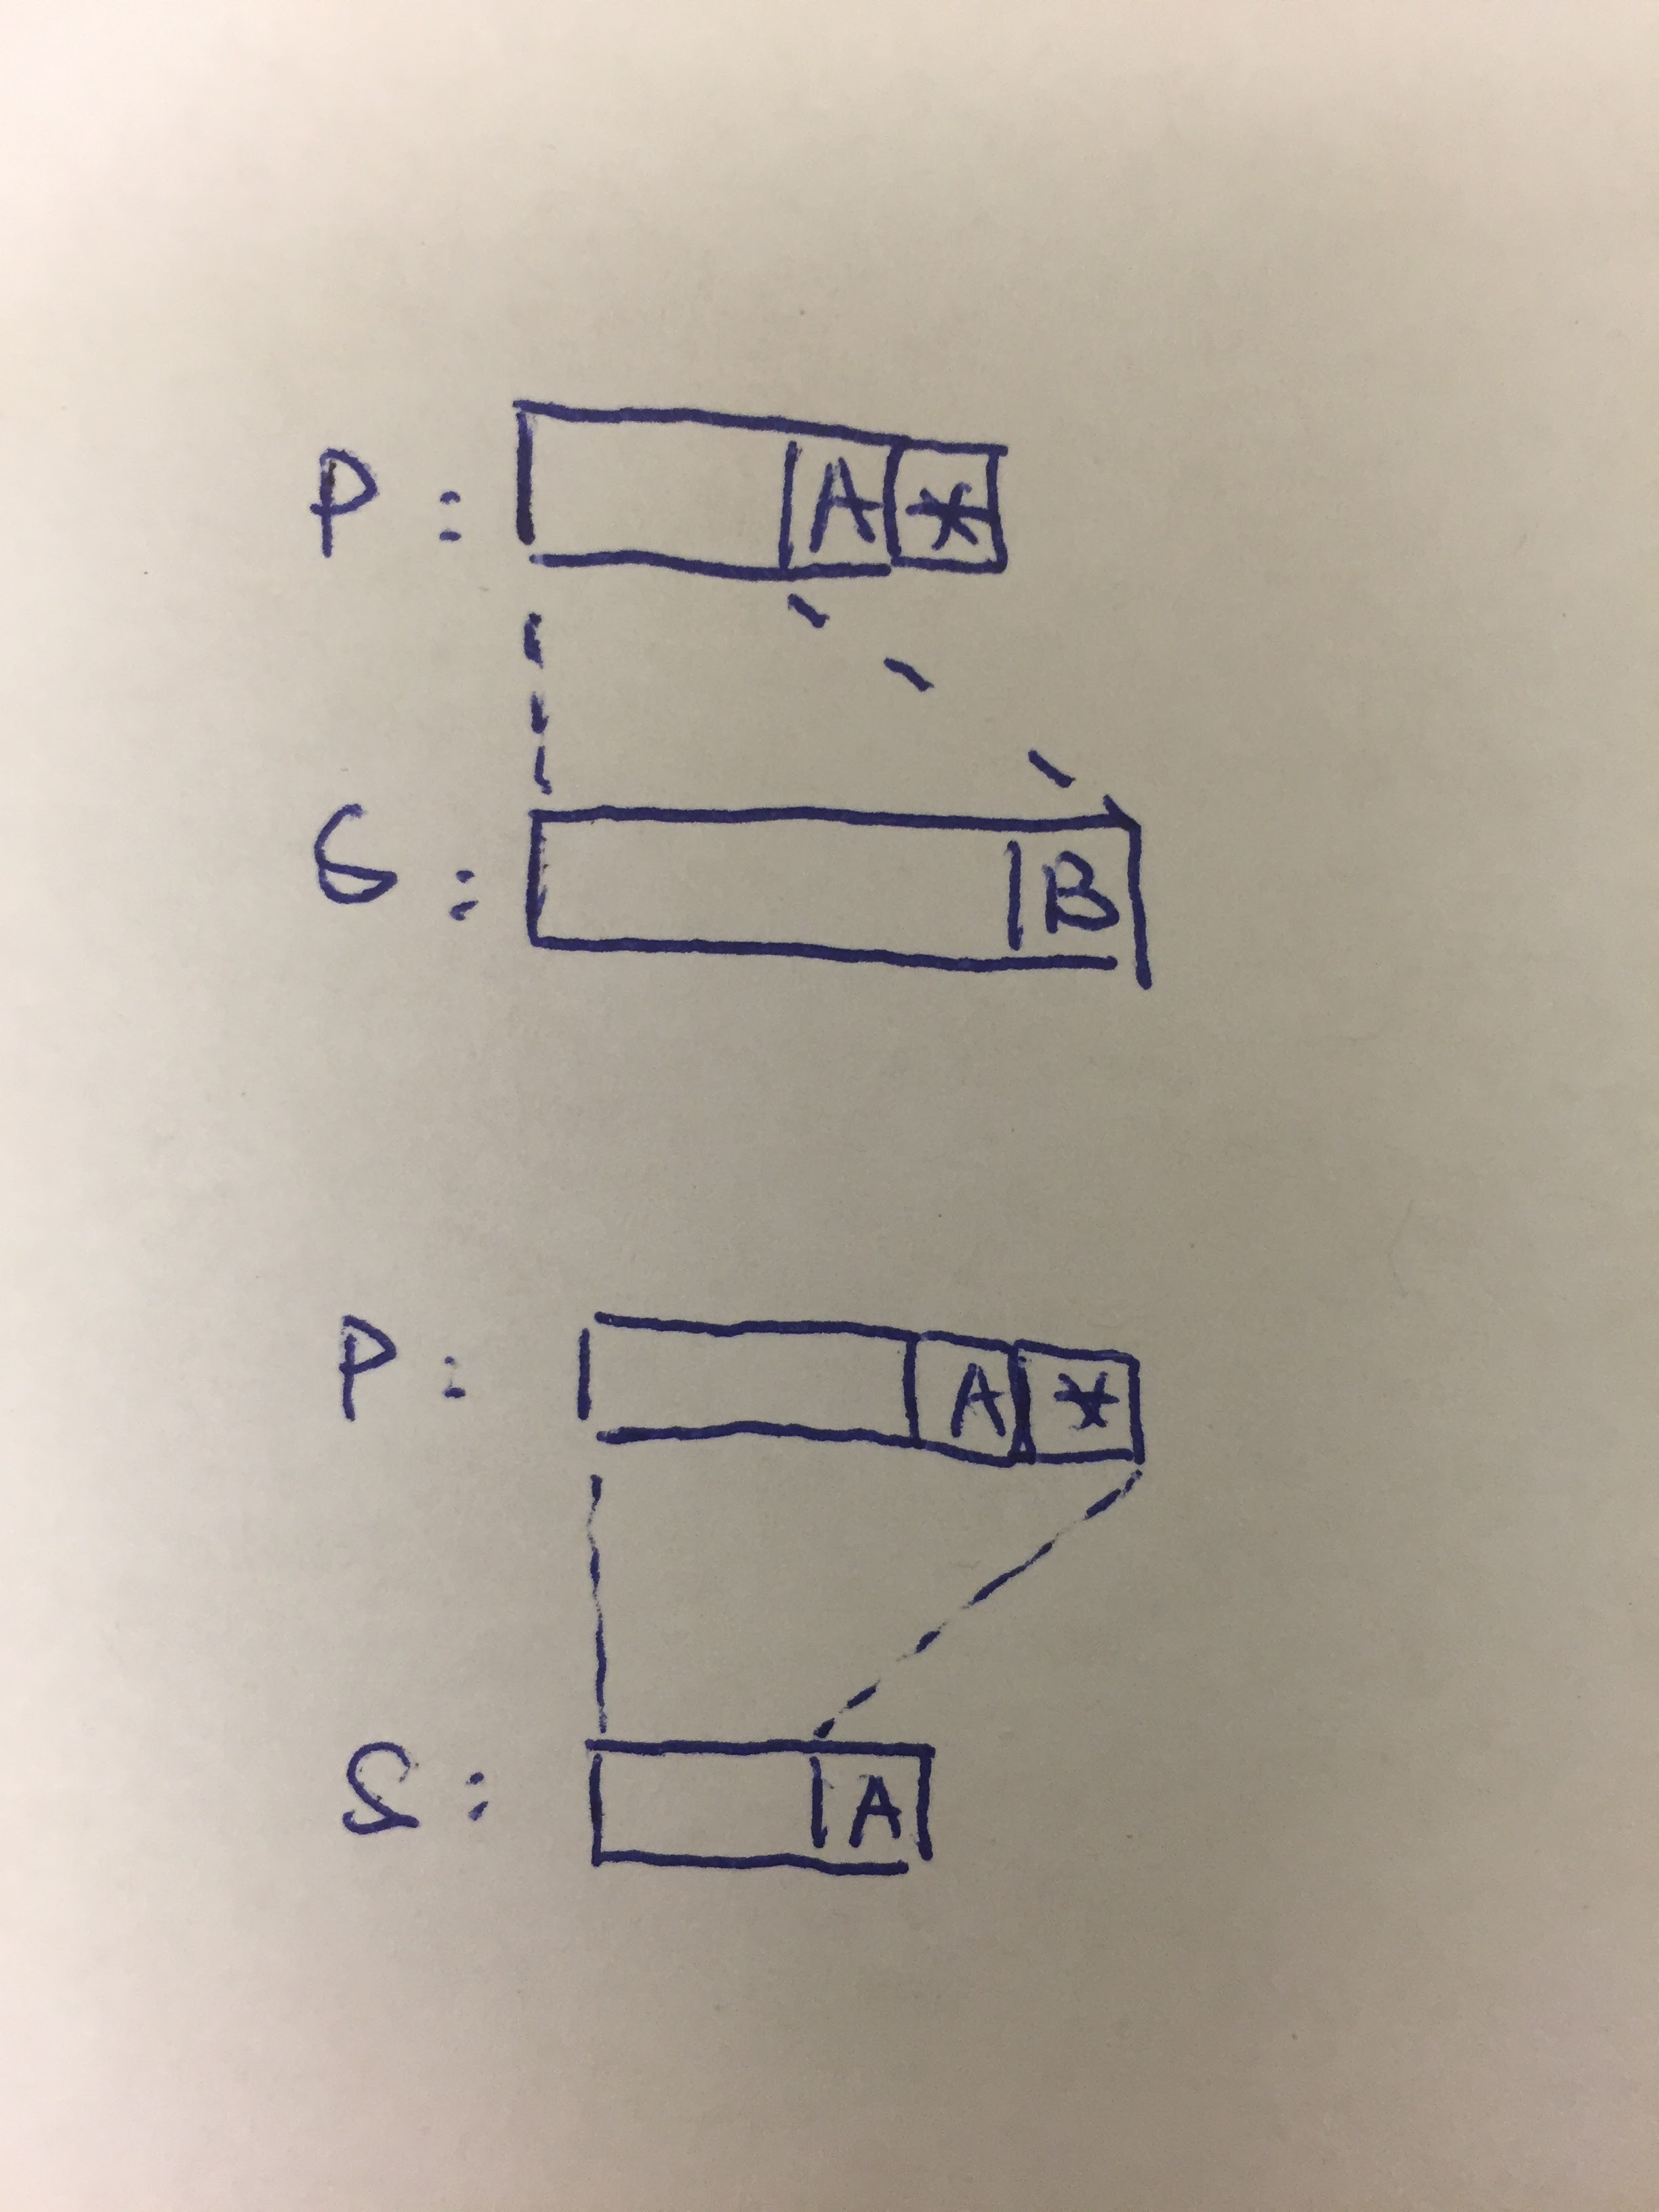 P: A *
S: B
P: A *
S: A